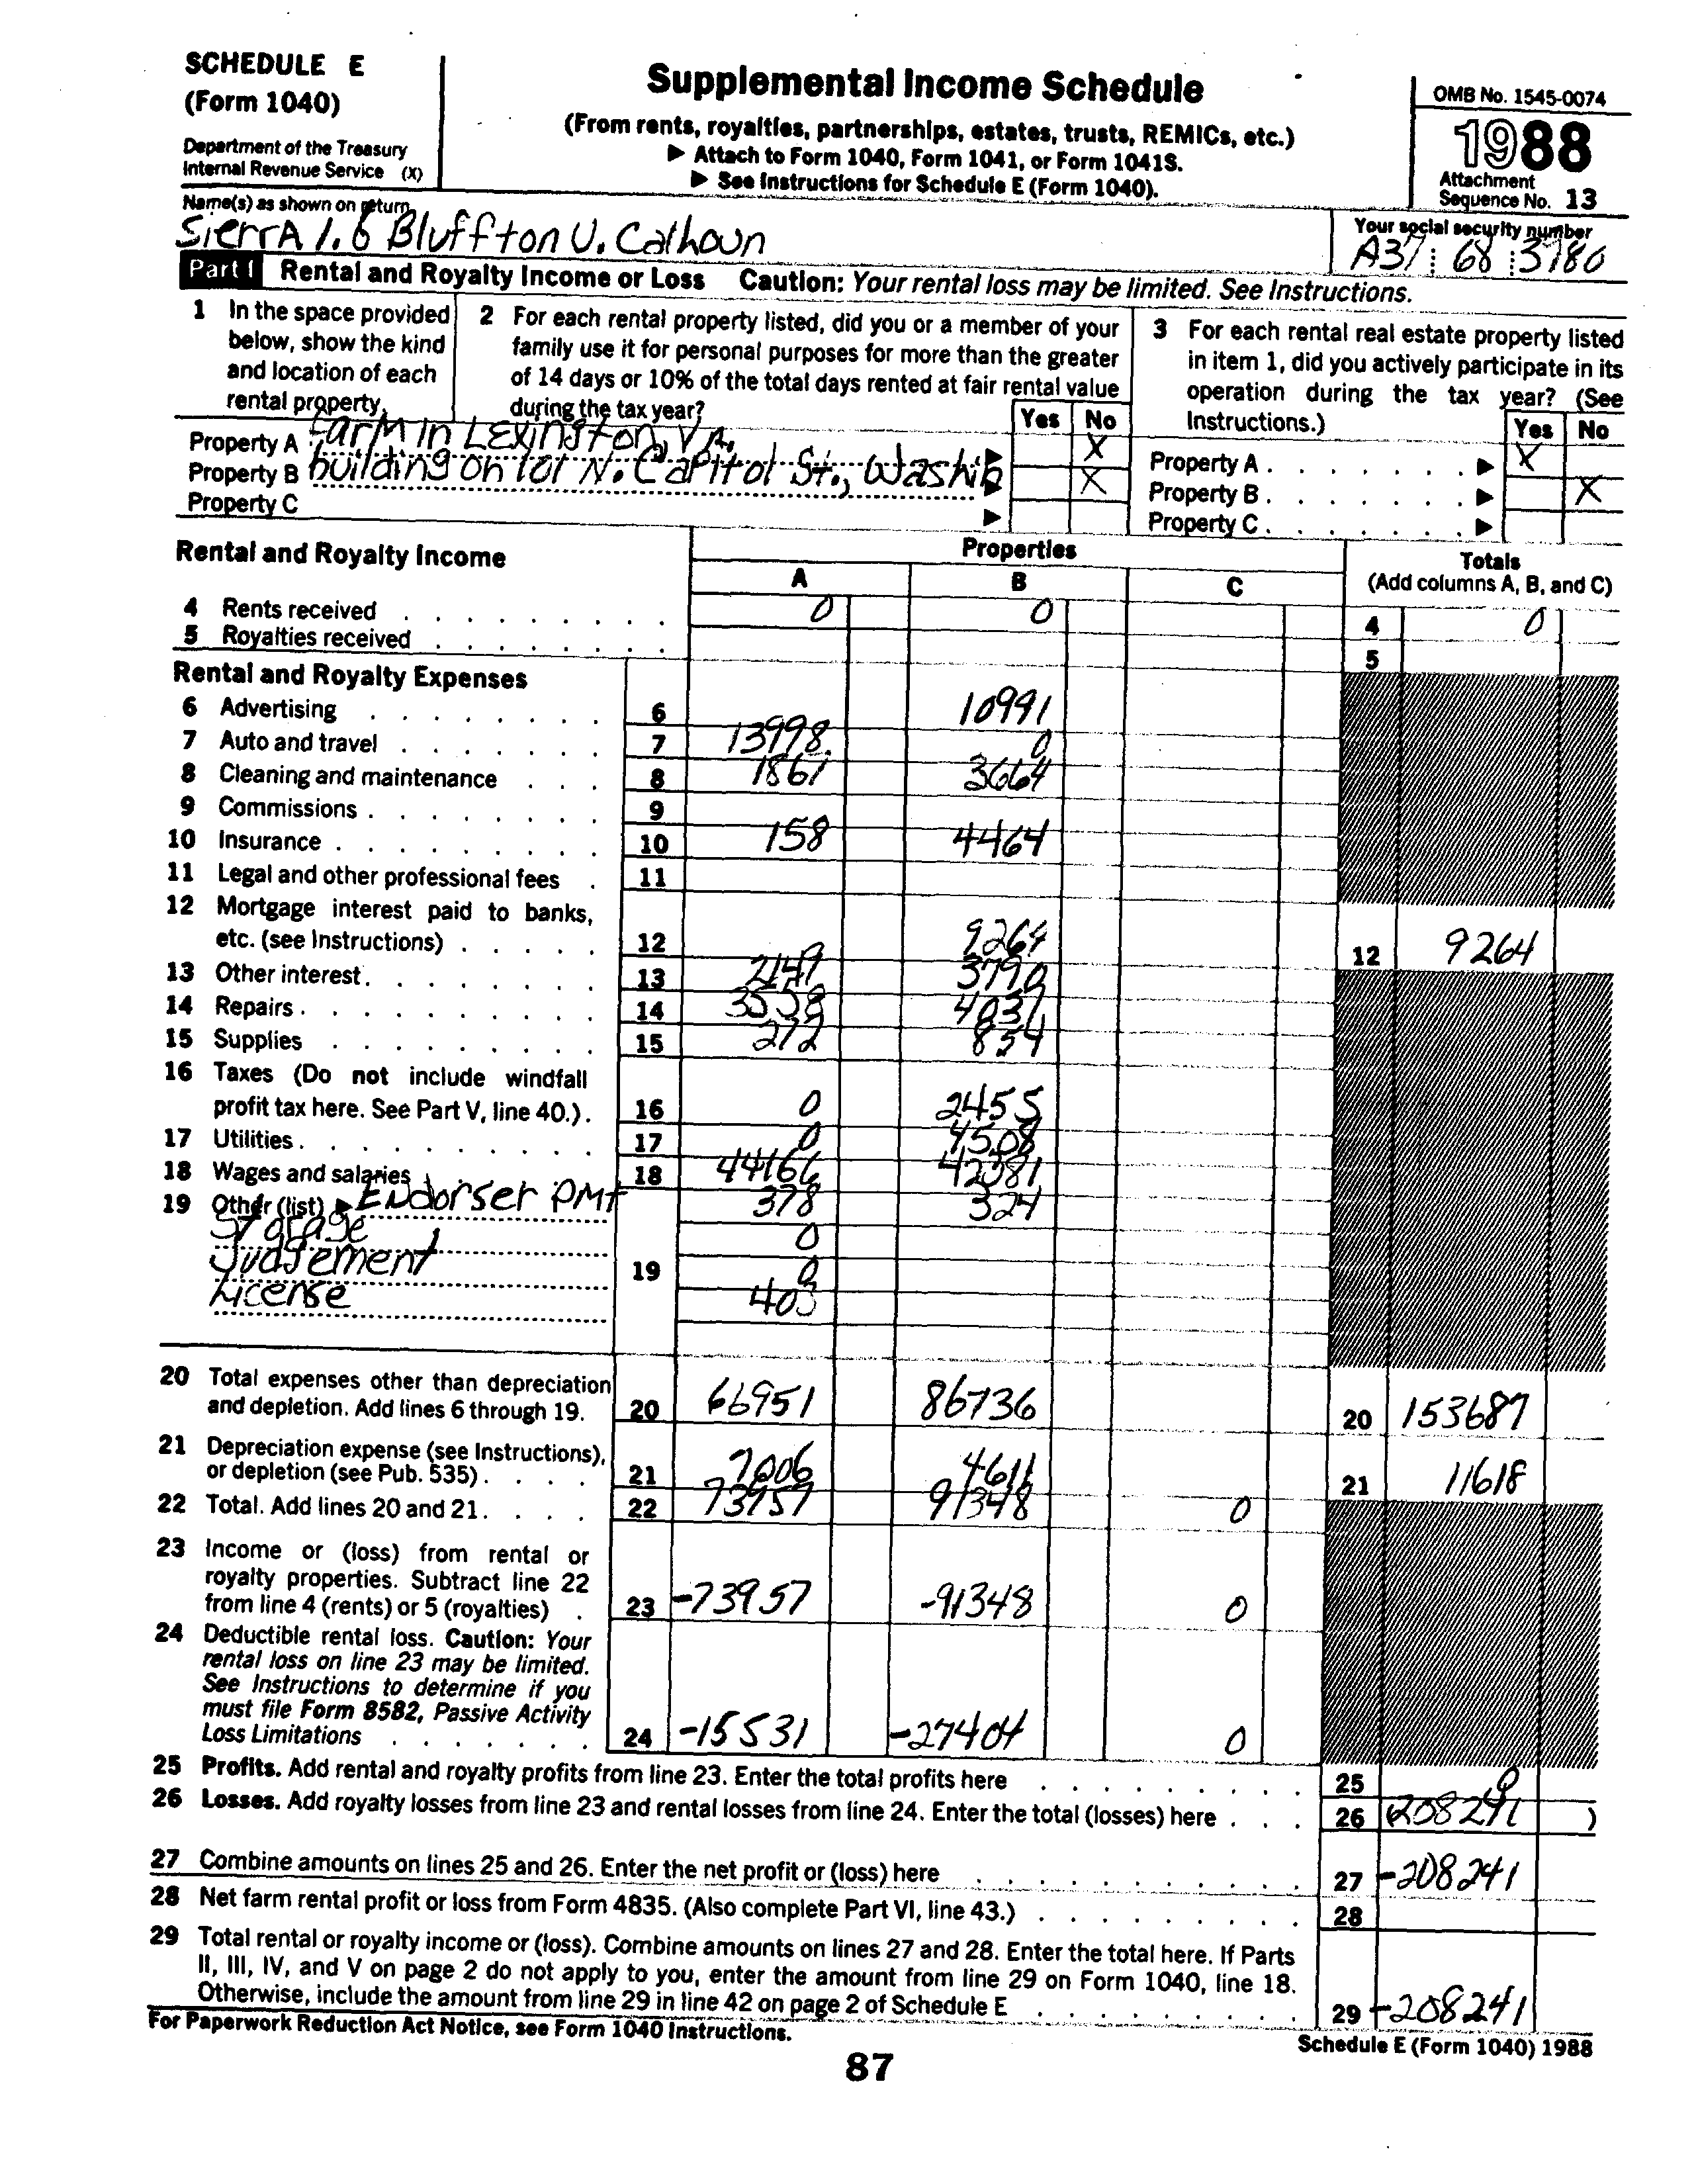 SCHEDULE E
(Form 1040)
Department of the Treasury
Internal Revenue Service (X)
Supplemental Income Schedule
(From rents, royalties, partnerships, estates, trusts, REMICs, etc.)
▶ Attach to Form 1040, Form 1041, or Form 1041S.
▶ See Instructions for Schedule E (Form 1040).
OMB No. 1545-0074
1988
Attachment
Sequence No. 13
Name(s) as shown on return
SierrA 1. 6 Bluffton U. Calhoun
Your social security number
A37 68 3780
Part I Rental and Royalty Income or Loss Caution: Your rental loss may be limited. See Instructions.
1 In the space provided below, show the kind and location of each rental property.
2 For each rental property listed, did you or a member of your family use it for personal purposes for more than the greater of 14 days or 10% of the total days rented at fair rental value during the tax year?
3 For each rental real estate property listed in item 1, did you actively participate in its operation during the tax year? (See Instructions.)
Yes No
Yes No
Property A Farm in Lexington, VA. ▶ X
Property A . . . . . . . ▶ X
Property B building on lot N. Capitol St., Washin ▶ X
Property B . . . . . . . ▶ X
Property C ▶
Property C . . . . . . . ▶
Rental and Royalty Income
Properties
A B C
Totals
(Add columns A, B, and C)
4 Rents received 0 0 4 0
5 Royalties received 5
Rental and Royalty Expenses
6 Advertising 6 10991
7 Auto and travel 7 13998. 0
8 Cleaning and maintenance 8 1861 3664
9 Commissions 9
10 Insurance 10 158 4464
11 Legal and other professional fees 11
12 Mortgage interest paid to banks,
etc. (see Instructions) 12 9264 12 9264
13 Other interest 13 2147 3790
14 Repairs 14 3558 4037
15 Supplies 15 272 854
16 Taxes (Do not include windfall
profit tax here. See Part V, line 40.) 16 0 2455
17 Utilities 17 0 4508
18 Wages and salaries 18 44166 42381
19 Other (list) ▶ Endorser PMt 378 324
Storage 0
Judgement 19 0
License 403
20 Total expenses other than depreciation
and depletion. Add lines 6 through 19. 20 66951 86736 20 153687
21 Depreciation expense (see Instructions),
or depletion (see Pub. 535) 21 7006 4611 21 11618
22 Total. Add lines 20 and 21 22 73957 91348 0
23 Income or (loss) from rental or
royalty properties. Subtract line 22
from line 4 (rents) or 5 (royalties) 23 -73957 -91348 0
24 Deductible rental loss. Caution: Your
rental loss on line 23 may be limited.
See Instructions to determine if you
must file Form 8582, Passive Activity
Loss Limitations 24 -15531 -27404 0
25 Profits. Add rental and royalty profits from line 23. Enter the total profits here 25 0
26 Losses. Add royalty losses from line 23 and rental losses from line 24. Enter the total (losses) here 26 (208241 )
27 Combine amounts on lines 25 and 26. Enter the net profit or (loss) here 27 -208241
28 Net farm rental profit or loss from Form 4835. (Also complete Part VI, line 43.) 28
29 Total rental or royalty income or (loss). Combine amounts on lines 27 and 28. Enter the total here. If Parts
II, III, IV, and V on page 2 do not apply to you, enter the amount from line 29 on Form 1040, line 18.
Otherwise, include the amount from line 29 in line 42 on page 2 of Schedule E 29 -208241
For Paperwork Reduction Act Notice, see Form 1040 Instructions.
Schedule E (Form 1040) 1988
87